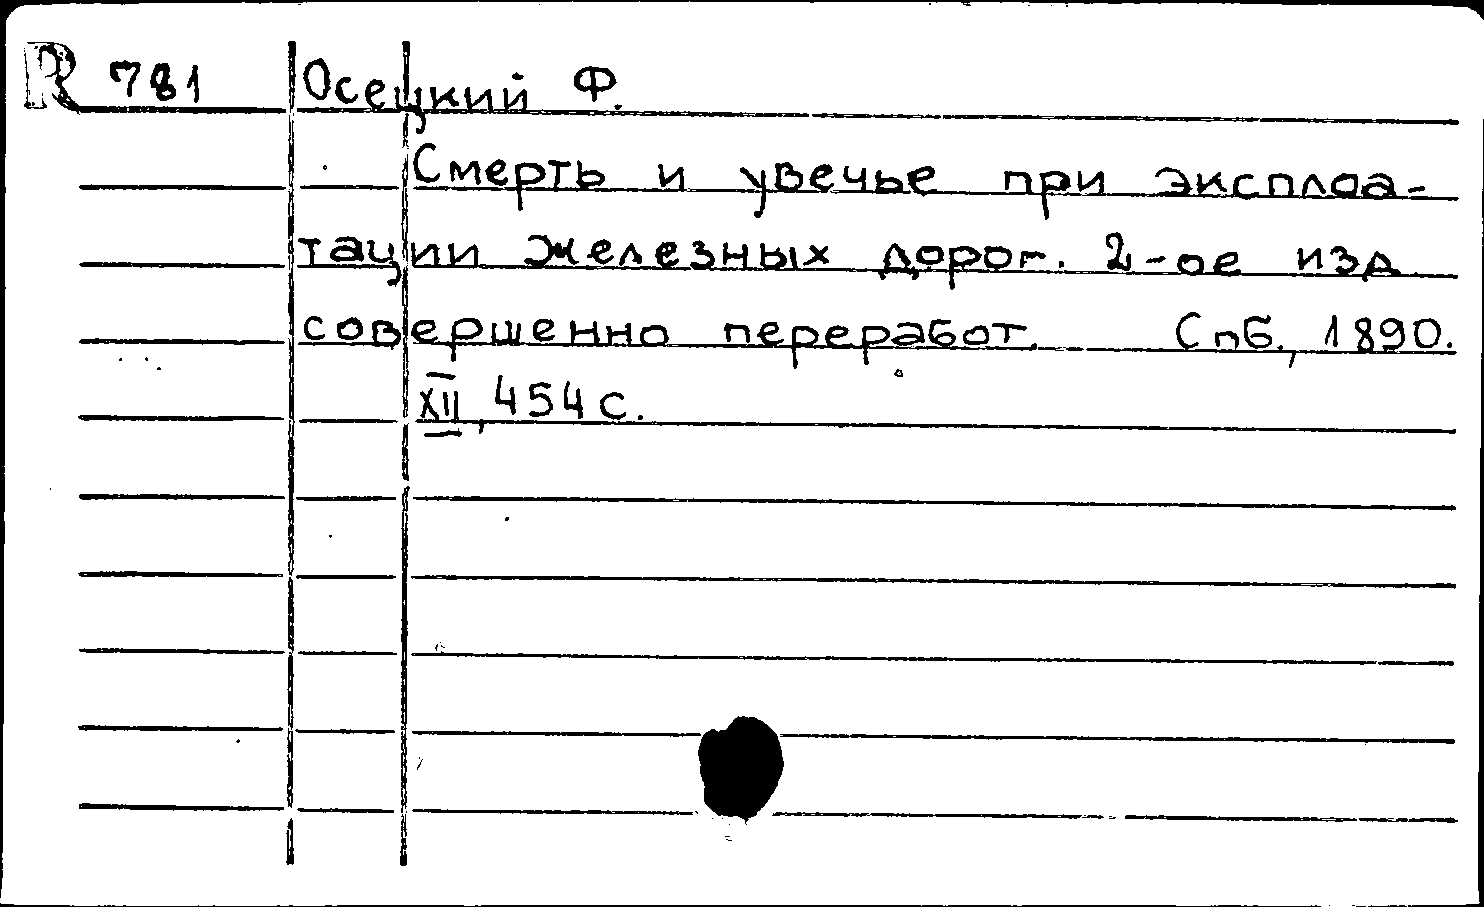 R 781 Осецкий Ф.
Смерть и увечье при эксплоа-
тации железных дорог. 2-ое изд
совершенно переработ. Спб., 1890.
XII, 454 с.